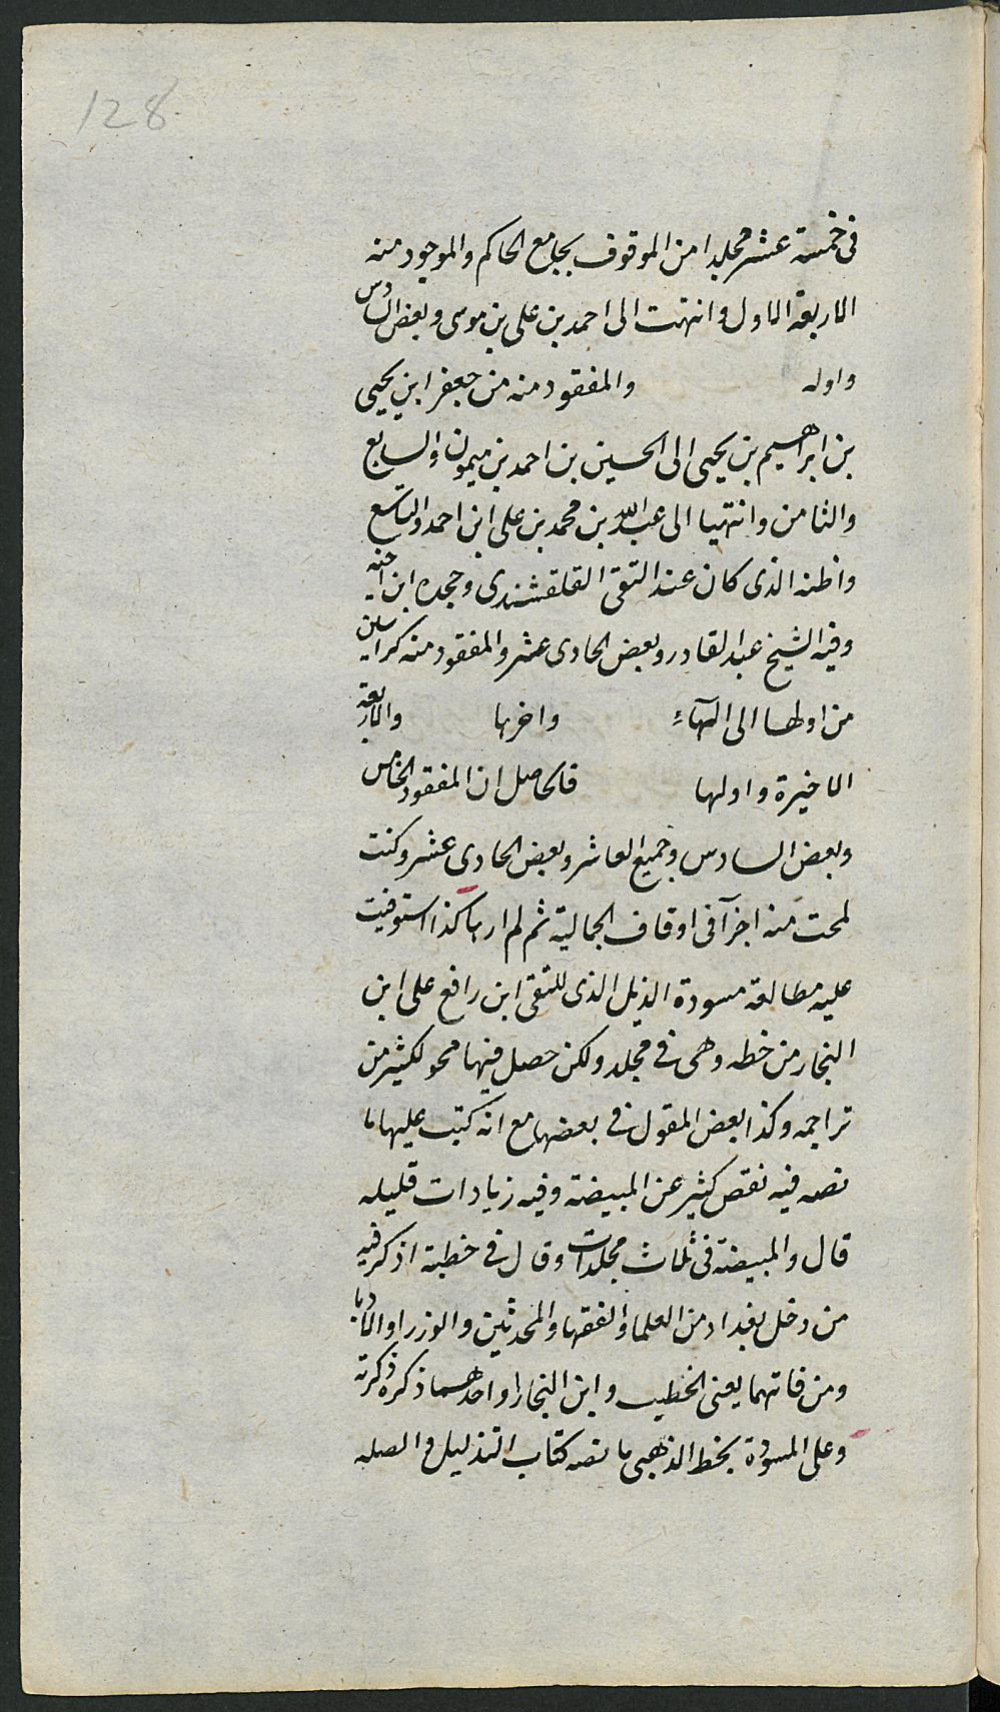 128
فى خمسة عشر مجلدا من الموقوف بجامع الحاكم والموجود منه
الاربعة الاول وانتهت الى احمد بن على بن موسى وبعض السادس
واوله والمفقود منه من جعفر ابن يحيى
بن ابراهيم بن يحيى الى الحسين بن احمد بن ميمون والسابع
والثامن وانتهيا الى عبد الله بن محمد بن على ابن احمد والتاسع
واظنه الذى كان عند التقى القلقشندى وجحده ابن اخيه
وفيه الشيخ عبد القادر وبعض الحادى عشر والمفقود منه كراسين
من اولها الى الهاء واخرها والاربعة
الاخيرة واولها فالحاصل ان المفقود الخامس
وبعض السادس وجميع العاشر وبعض الحادى عشر وكنت
لمحت منه اجزآ فى اوقاف الجمالية ثم لم ارها كذا استوفيت
عليه مطالعة مسودة الذيل الذى للتقى ابن رافع على ابن
النجار من خطه وهى فى مجلد ولكن حصل فيها محو لكثير من
تراجمه وكذا بعض المقول فى بعضها مع انه كتب عليها ما
نصه فيه نقص كثير عن المبيضة وفيه زيادات قليله
قال والمبيضة فى ثلاث مجلدات وقال فى خطبة اذكر فيه
من دخل بغداد من العلما والفقها والمحدثين والوزرا والادبا
ومن فاتهما يعنى الخطيب وابن النجار او احدهما ذكره ذكرته
وعلى المسودة بخط الذهبى ما نصه كتاب التذليل والصله